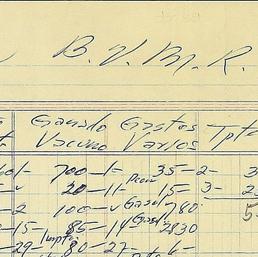 B. V. M. R.
Ganado Gastos Tpte
Vacuno Varios
700-1- 35-2- 3
20-11- Peon 15- 3-
2 100- Gasol 780 5
-15- 85-14 Gasol 2830
-29- Impto 80-27- 6-